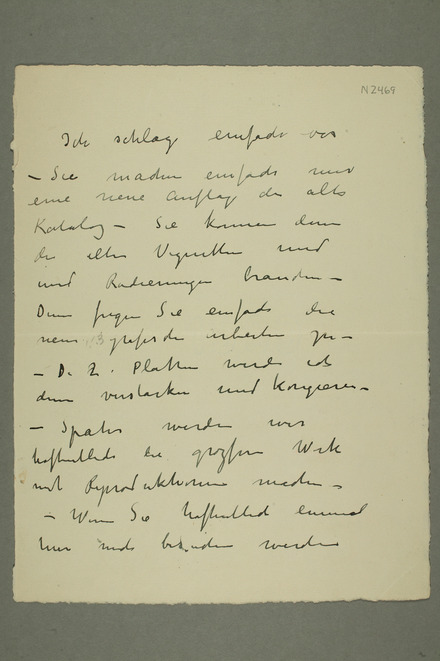 N 2469
Ich schlage einfach vor
– Sie machen einfach nur
eine neue Auflag der alte
Katalog – Sie können dann
die alten Vignetten und
und Radierungen brauchen –
Dann fügen Sie einfach die
neue arbeiten zu –
– D. Z. Platten werde ich
dann verstärken und Korrigieren –
– Später werden wir
hoffentlich ein grosses Werk
mit Reproduktionen machen –
– Wenn Sie hoffentlich einmal
hier mich besuchen werden